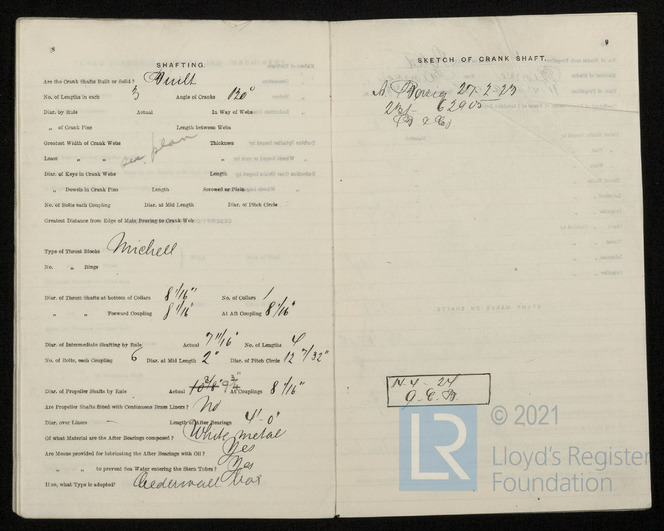 8
SHAFTING.
Are the Crank Shafts Built or Solid? Built
No. of Lengths in each 3 Angle of Cranks 120°
Diar. by Rule Actual In Way of Webs
„ of Crank Pins Length between Webs
Greatest Width of Crank Webs Thickness
Least „ „ „
see plan
Diar. of Keys in Crank Webs Length
„ Dowels in Crank Pins Length Screwed or Plain
No. of Bolts each Coupling Diar. at Mid Length Diar. of Pitch Circle
Greatest Distance from Edge of Main Bearing to Crank Web
Type of Thrust Blocks Michell
No. „ Rings
Diar. of Thrust Shafts at bottom of Collars 8 1/16" No. of Collars 1
„ „ Forward Coupling 8 1/16" At Aft Coupling 8 1/16"
Diar. of Intermediate Shafting by Rule Actual 7 11/16" No. of Lengths 4
No. of Bolts, each Coupling 6 Diar. at Mid Length 2" Diar. of Pitch Circle 12 7/32"
Diar. of Propeller Shafts by Rule Actual 9 3/4" At Couplings 8 1/16"
Are Propeller Shafts fitted with Continuous Brass Liners? No
Diar. over Liners — Length of After Bearings 4'-0"
Of what Material are the After Bearings composed? White metal
Are Means provided for lubricating the After Bearings with Oil? Yes
„ „ to prevent Sea Water entering the Stern Tubes? Yes
If so, what Type is adopted? Cederwall box
9
SKETCH OF CRANK SHAFT.
27-2-23
62905
14.4-24
© 2021
LR
Lloyd's Register
Foundation